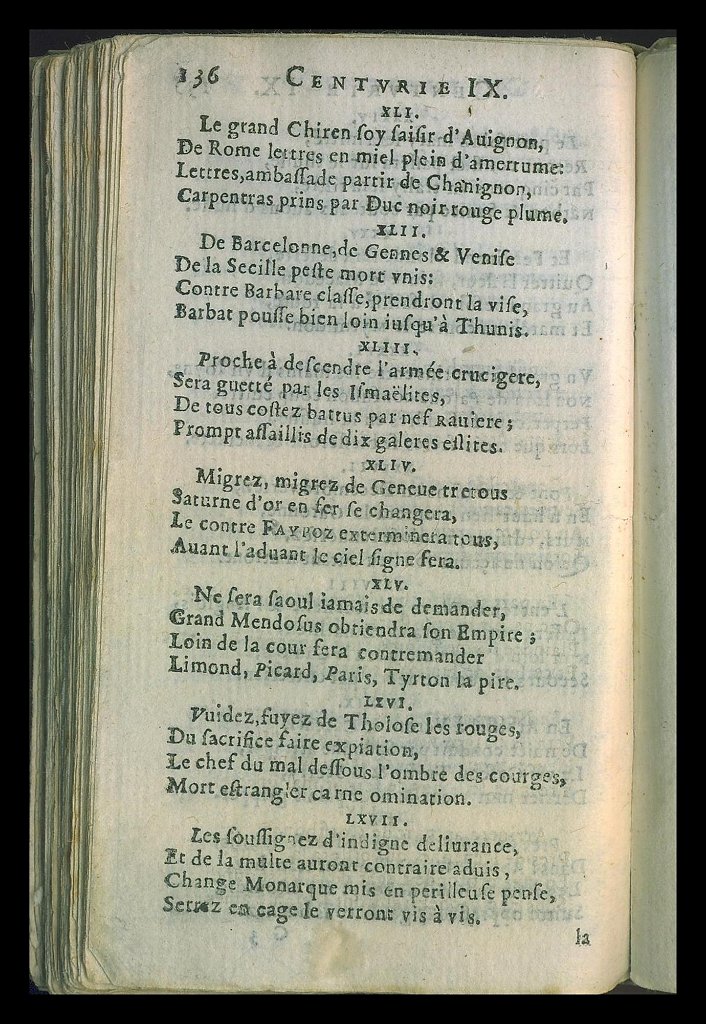 136 CENTVRIE IX.
XLI.
Le grand Chiren ſoy ſaiſir d'Auignon,
De Rome lettres en miel plein d'amertume:
Lettres,ambaſſade partir de Chanignon,
Carpentras prins par Duc noir rouge plume.
XLII.
De Barcelonne,de Gennes & Veniſe
De la Secille peſte mort vnis:
Contre Barbare claſſe,prendront la viſe,
Barbat pouſſe bien loin iuſqu'à Thunis.
XLIII.
Proche à deſcendre l'armée crucigere,
Sera guetté par les Iſmaëlites,
De tous coſtez battus par nef Rauiere;
Prompt aſſaillis de dix galeres eſlites.
XLIV.
Migrez, migrez de Geneue tretous
Saturne d'or en fer ſe changera,
Le contre RAYPOZ exterminera tous,
Auant l'aduant le ciel ſigne fera.
XLV.
Ne ſera ſaoul iamais de demander,
Grand Mendoſus obtiendra ſon Empire;
Loin de la cour fera contremander
Limond, Picard, Paris, Tyrron la pire.
LXVI.
Vuidez,fuyez de Tholoſe les rouges,
Du ſacrifice faire expiation,
Le chef du mal deſſous l'ombre des courges,
Mort eſtrangler carne omination.
LXVII.
Les ſouſſignez d'indigne deliurance,
Et de la multe auront contraire aduis,
Change Monarque mis en perilleuſe penſe,
Serrez en cage le verront vis à vis.
la